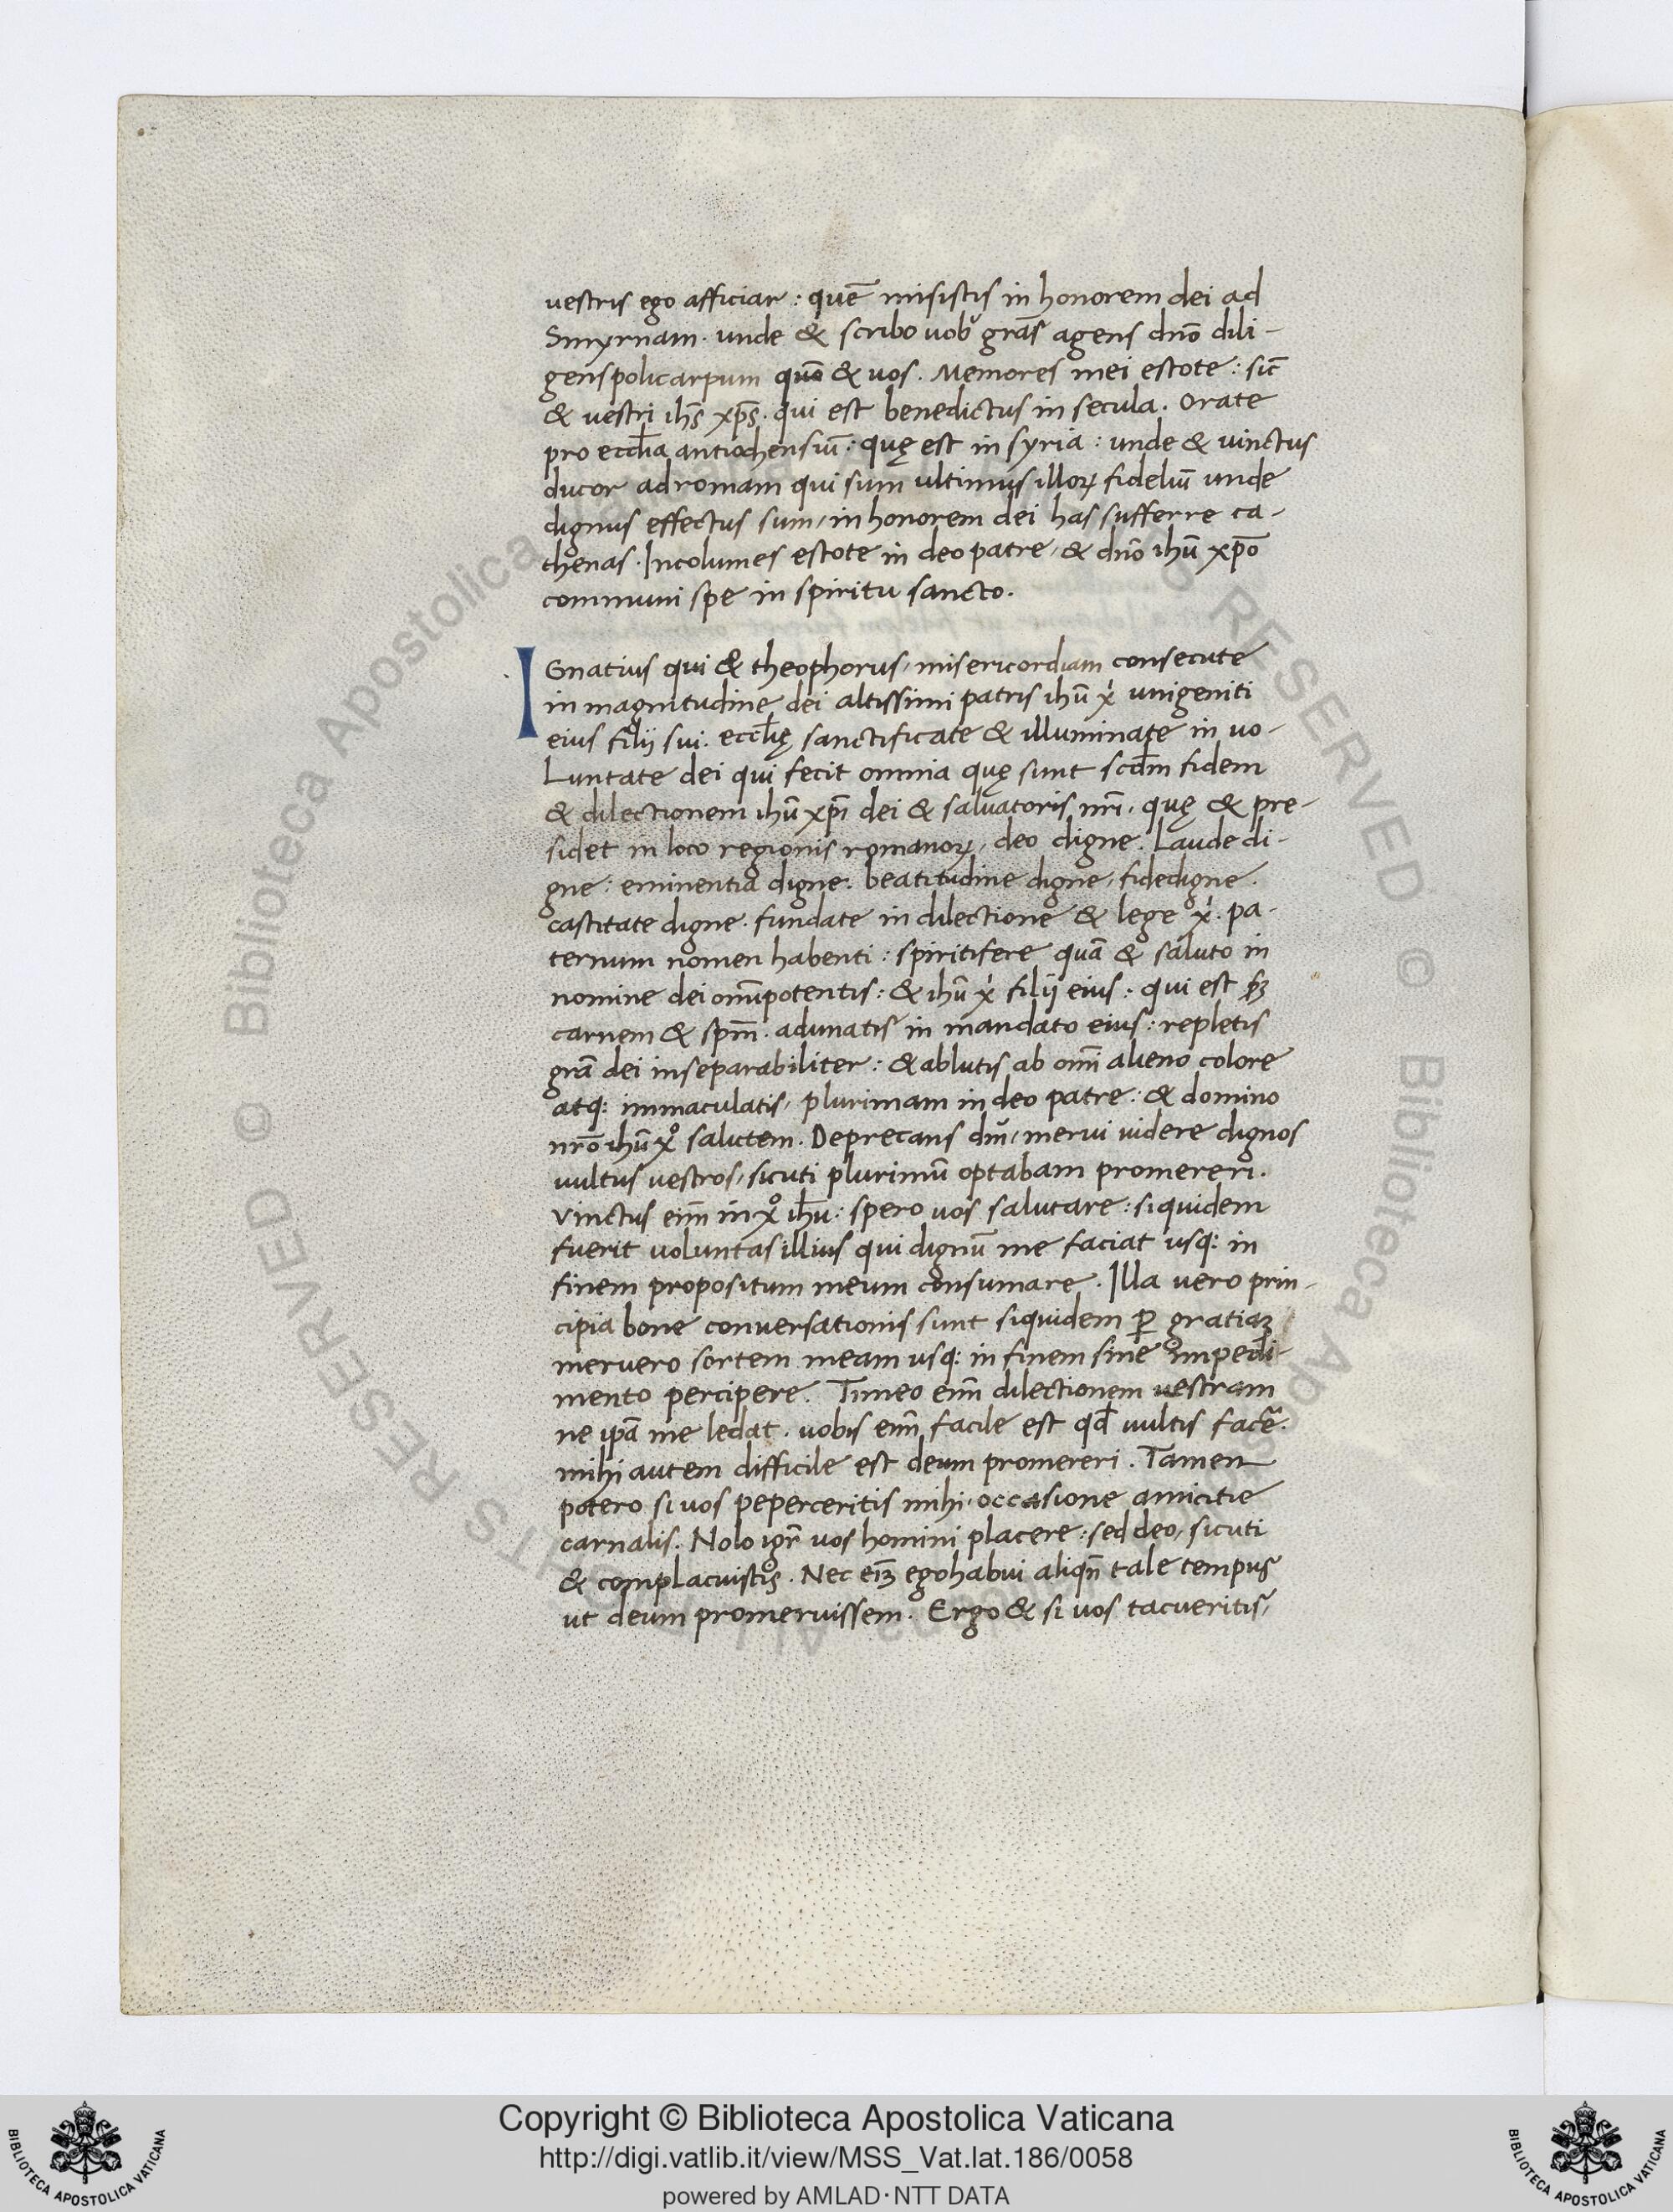 vestris ego afficiar : quē misistis in honorem dei ad
Smyrnam. unde & scribo uob grās agens dnō dili-
gens policarpum quō & uos. Memores mei estote : sic̄
& vestri ihs̄ xps̄. qui est benedictus in secula. Orate
pro eccl̄ia antiochensiū : quę est in syria : unde & vinctus
ducor ad romam qui sum ultimus illoꝝ fideliū unde
dignus effectus sum, in honorem dei has sufferre ca-
thenas. Incolumes estote in deo patre, & dnō ihū xpō
communi spe in spiritu sancto.
IGnatius qui & theophorus, misericordiam consecute
in magnitudine dei altissimi patris ihū xi unigeniti
eius filij sui. eccl̄ię sanctificate & illuminate in vo-
luntate dei qui fecit omnia quę sunt scdm̄ fidem
& dilectionem ihū xpī dei & salvatoris nrī. quę & pre-
sidet in loco regionis romanoꝝ, deo digne. Laude di-
gne : eminentia digne. beatitudine digne, fide digne.
castitate digne. fundate in dilectione & lege xi. pa-
ternum nomen habenti : spiritifere quā & saluto in
nomine dei omīpotentis : & ihū xi filij eius : qui est
carnem & spm̄. adunatis in mandato eius : repletis
grā dei inseparabiliter : & ablutis ab omī alieno colore
atq: immaculatis, plurimam in deo patre : & domino
nrō ihū xo salutem. Deprecans dm̄, merui videre dignos
vultus vestros, sicuti plurimū optabam promereri.
Vinctus enī in xo ihū : spero vos salutare : siquidem
fuerit voluntas illius qui dignū me faciat usq: in
finem propositum meum consumare. Illa vero prin-
cipia bone conversationis sunt siquidem ꝑ gratiaꝫ
meruero sortem meam usq: in finem sine impedi-
mento percipere. Timeo enī dilectionem vestram
ne ip̄a me ledat. vobis enī facile est qđ vultis facē.
mihi autem difficile est deum promereri. Tamen
potero si vos peperceritis mihi, occasione amicitie
carnalis. Nolo igr̄ vos homini placere : sed deo, sicuti
& complacuistis. Nec eiꝫ ego habui aliqn̄ tale tempus
ut deum promervissem. Ergo & si vos tacueritis,
Copyright © Biblioteca Apostolica Vaticana
http://digi.vatlib.it/view/MSS_Vat.lat.186/0058
powered by AMLAD·NTT DATA
BIBLIOTECA APOSTOLICA VATICANA
BIBLIOTECA APOSTOLICA VATICANA